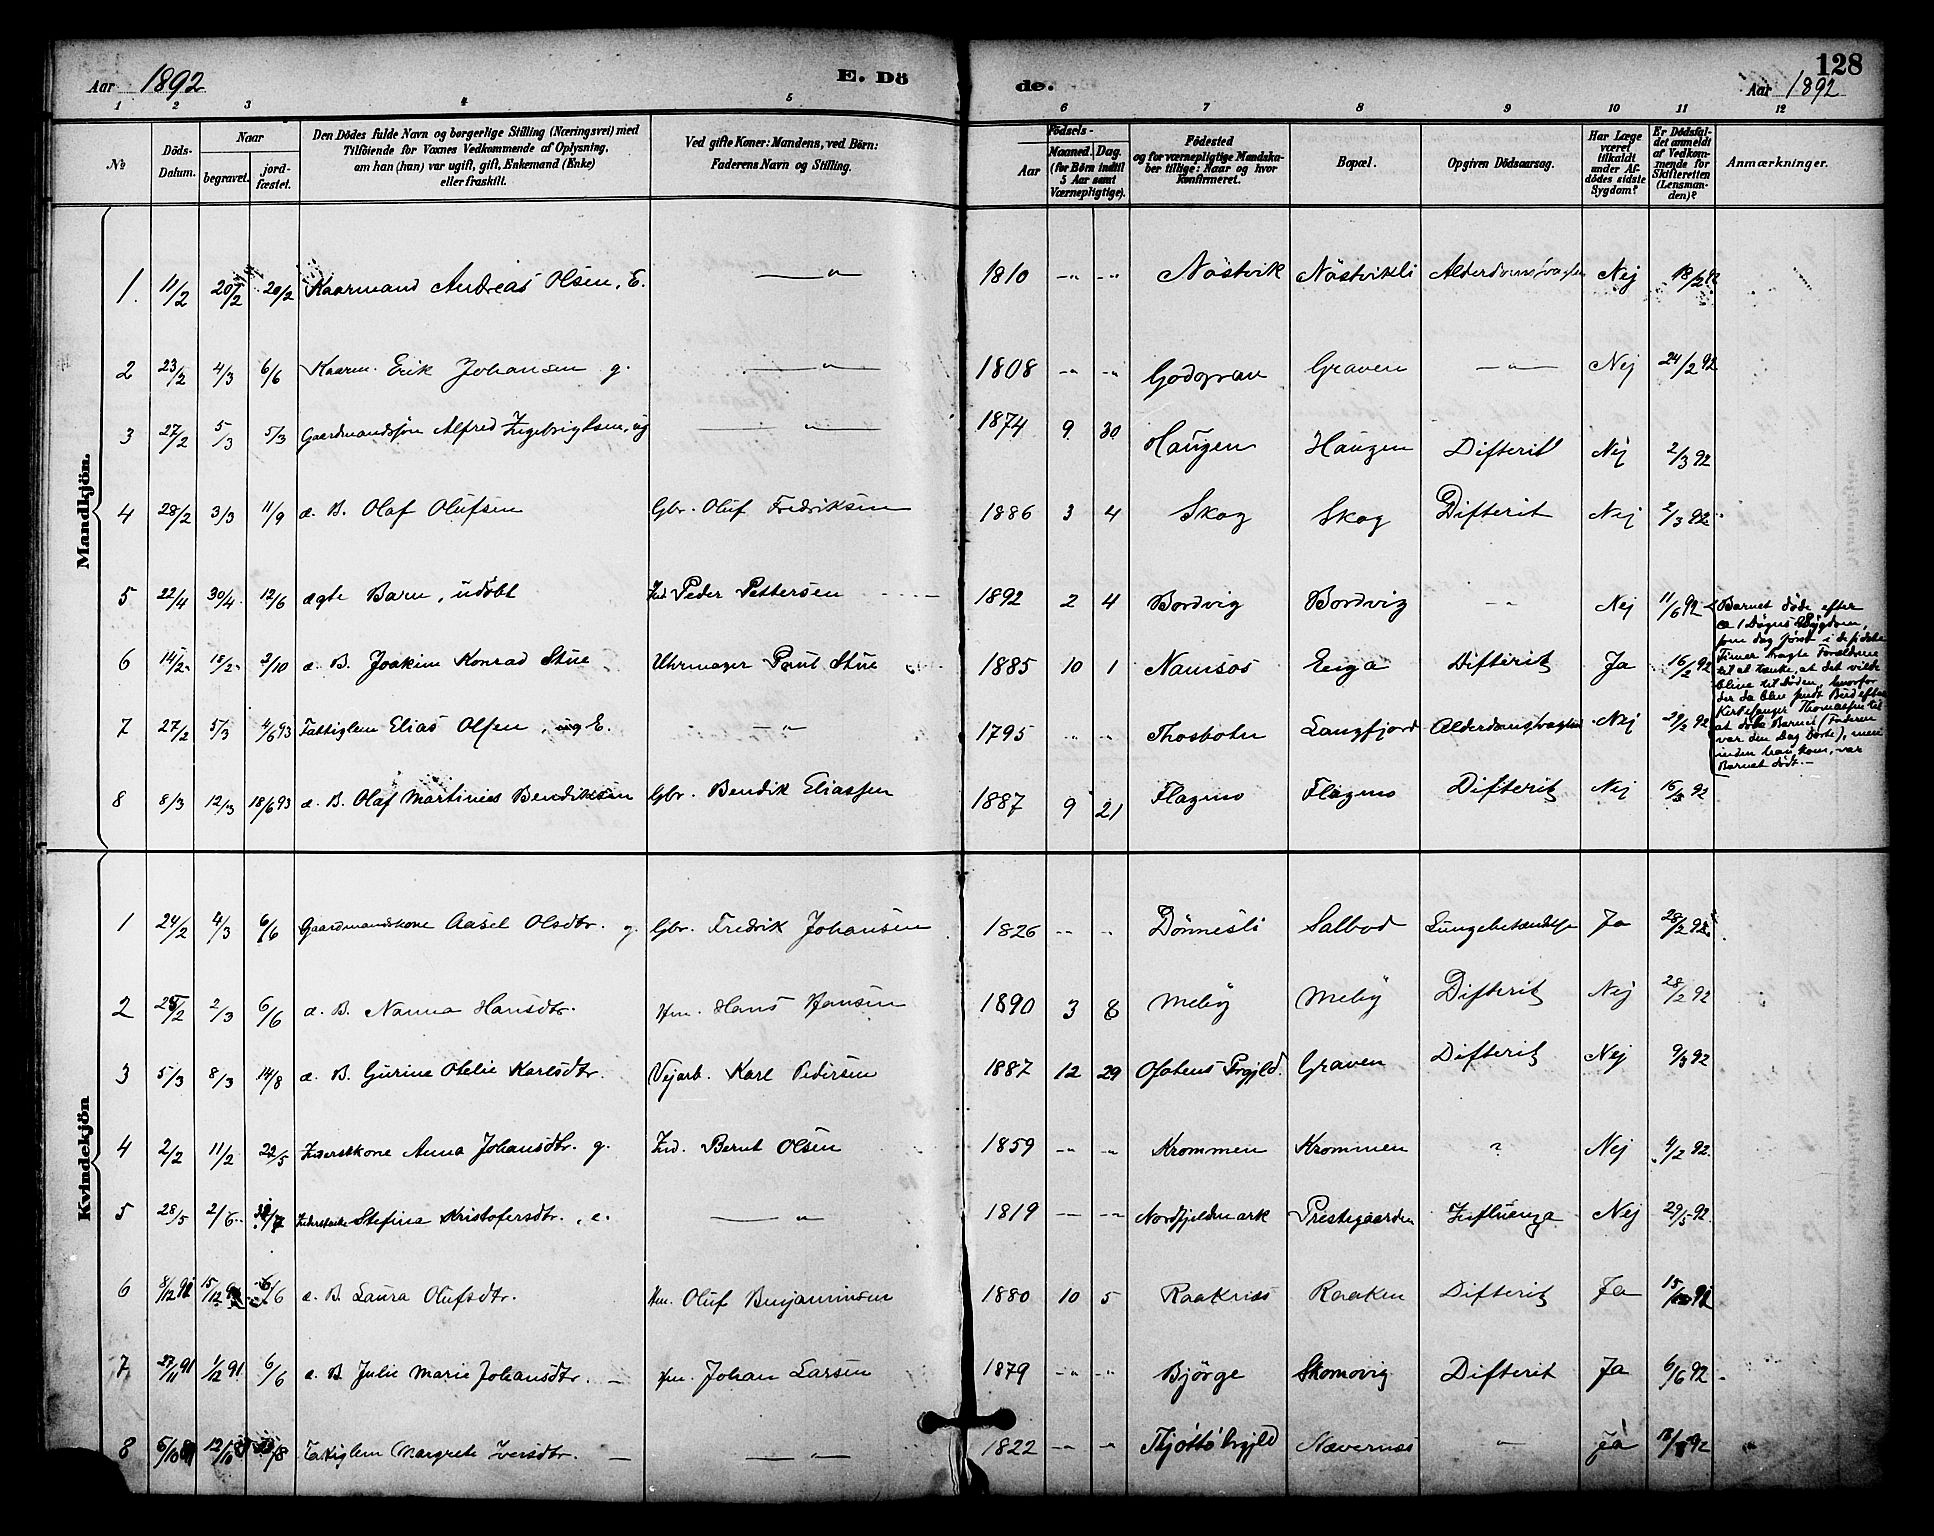 Aar 1892 E. Dö de. 128
Aar 1892
1 2 3 4 5 6 7 8 9 10 11 12
№ Döds-Datum. Naar begravet. jordfæstet. Den Dödes fulde Navn og borgerlige Stilling (Næringsvei) med Tilföiende for Voxnes Vedkommende af Oplysning, om han (hun) var ugift, gift, Enkemand (Enke) eller fraskilt. Ved gifte Koner: Mandens, ved Börn: Faderens Navn og Stilling. Födsels- Aar Maaned. Dag. (for Börn indtil 5 Aar samt Værnepligtige). Födested og for værnepligtige Mandskaber tillige: Naar og hvor Konfirmeret. Bopæl. Opgiven Dödsaarsag. Har Læge været tilkaldt under Afdödes sidste Sygdom? Er Dödsfaldet anmeldt af Vedkommende for Skifteretten (Lensmanden)? Anmærkninger.
Mandkjön.
1. 11/2 20/2 20/2 Kaarmand Andreas Olsen, E. —"— 1810 -"- -"- Nöstvik Nöstvikli Nej 18/2 92
2 23/2 4/3 6/6 Kaarm. Erik Johansen g. —"— 1808 -"- -"- Graven —"— Nej 24/2 92
3 27/2 5/3 5/3 Gaardmandssøn Alfred Ingebrigtsen, ug —"— 1874 9 30 Haugen Haugen Difterit Nej 2/3 92
4 28/2 3/3 11/9 æ. B. Olaf Olufsen Gbr. Oluf Fredriksen 1886 3 4 Skog Skog Difterit Nej 2/3 92
5 22/4 30/4 12/6 ægte Barn, udöbt Ind. Peder Pettersen 1892 2 4 Bordvig Bordvig -"- Nej 11/6 92
Barnet døde efter
ca 1 Døgns Sygdom,
som dog først i de sidste
Timer bragte Forældrene
til at tænke, at det vilde
blive til Døden, hvorfor
der da blev sendt Bud efter
Kirkesanger Thomassen til
at døbe Barnet (Faderen
var den Dag borte), men
inden han kom, var
Barnet dødt. —
6 14/2 18/2 2/10 æ. B. Joakim Konrad Stue Uhrmager Paul Stue 1885 10 1 Namsos Difterit Ja 16/2 92
7 27/2 5/3 4/6 93 Fattiglem Elias Olsen, E. —"— 1795 -"- -"- Thosbotn Langfjord Nej 29/2 92
8 8/3 12/3 18/6 93 æ. B. Olaf Martinius Bendiksen Gbr. Bendik Eliassen 1887 9 21 Flagmo Flagmo Difterit Nej 15/3 92
Kvindekjön
1 24/2 4/3 6/6 Gaardmandskone Aasel Olsdtr. g. Gbr. Fredrik Johansen 1826 -"- -"- Dönnesli Salbod Lungebetændelse Ja 28/2 92
2 25/2 2/3 6/6 æ. B. Nanna Hansdtr. Hm. Hans Jansen 1890 3 8 Meby Meby Difterit Nej 28/2 92
3 5/3 8/3 14/8 æ. B. Gurine Otelie Karlsdtr. Vejarb. Karl Pedersen 1887 12 29 Ofotens Prgjld. Graven Difterit Nej 9/3 92
4 2/2 11/2 22/5 Inderstkone Anna Johansdtr. g. Ind. Bernt Olsen 1859 -"- -"- Krommen Krommen ? Nej 4/2 92
5 28/5 2/6 Stefina Kristofersdtr., e. —"— 1819 -"- -"- Nordfjeldmark Prestegaarden Influenza Nej 29/5 92
6 8/12 91 15/12 6/6 æ. B. Laura Olufsdtr. Hm. Oluf Benjaminsen 1880 10 5 Raaknes Raaken Difterit Ja
7 27/11 91 1/12 91 6/6 æ. B. Julie Marie Johansdtr. — Hm. Johan Larsen 1879 -"- -"- Bjørge Skomovig Difterit Ja 6/6 92
8 5/10 12/10 Margrete Iversdtr. — —"— 1822 -"- -"- Tjøttø Prgjld Nævernes -"- Ja